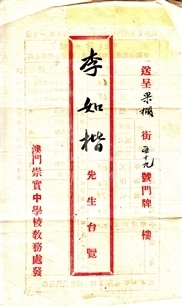 送呈果欄街五十九號門牌 樓
李如楷先生台覽
澳門崇實中學校教務處發